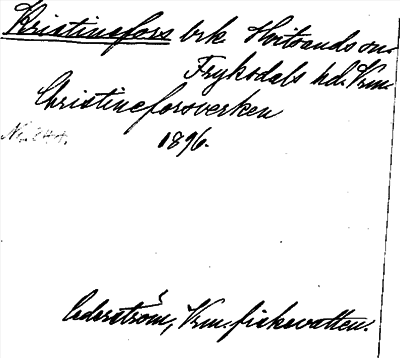 Kristinefors brk Hvitsands sn.
Fryksdals hd. Vrm.
Christineforsverken
1896.
Cederström, Vrm. fiskevatten.